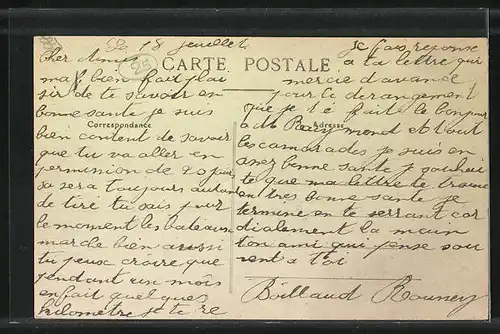 Le 18 jeuillet
CARTE POSTALE
Correspondance
Adresse
Cher Ami
ma bien fait plai
sir de te savoir en
bonne sante je suis
bien content de savoir
que tu va aller en
permission de 20 jour
sa sera toujours autan
de tiré tu sais pour
le moment les bateaux
marche bien aussi
tu peux croire que
pendant un mois
en fait quelques
kilometre je te re
Je fais reponse
a ta lettre qui
mercie d'avance
pour le derangement
que je t'é fait le bonjour
a Mr Raymond et tout
les camarades je suis en
assez bonne sante je souhai
te que ma lettre te trouve
en tres bonne sante je
termine en te serrant cor
dialement la main
ton ami qui pense sou
vent a toi
Boillaud